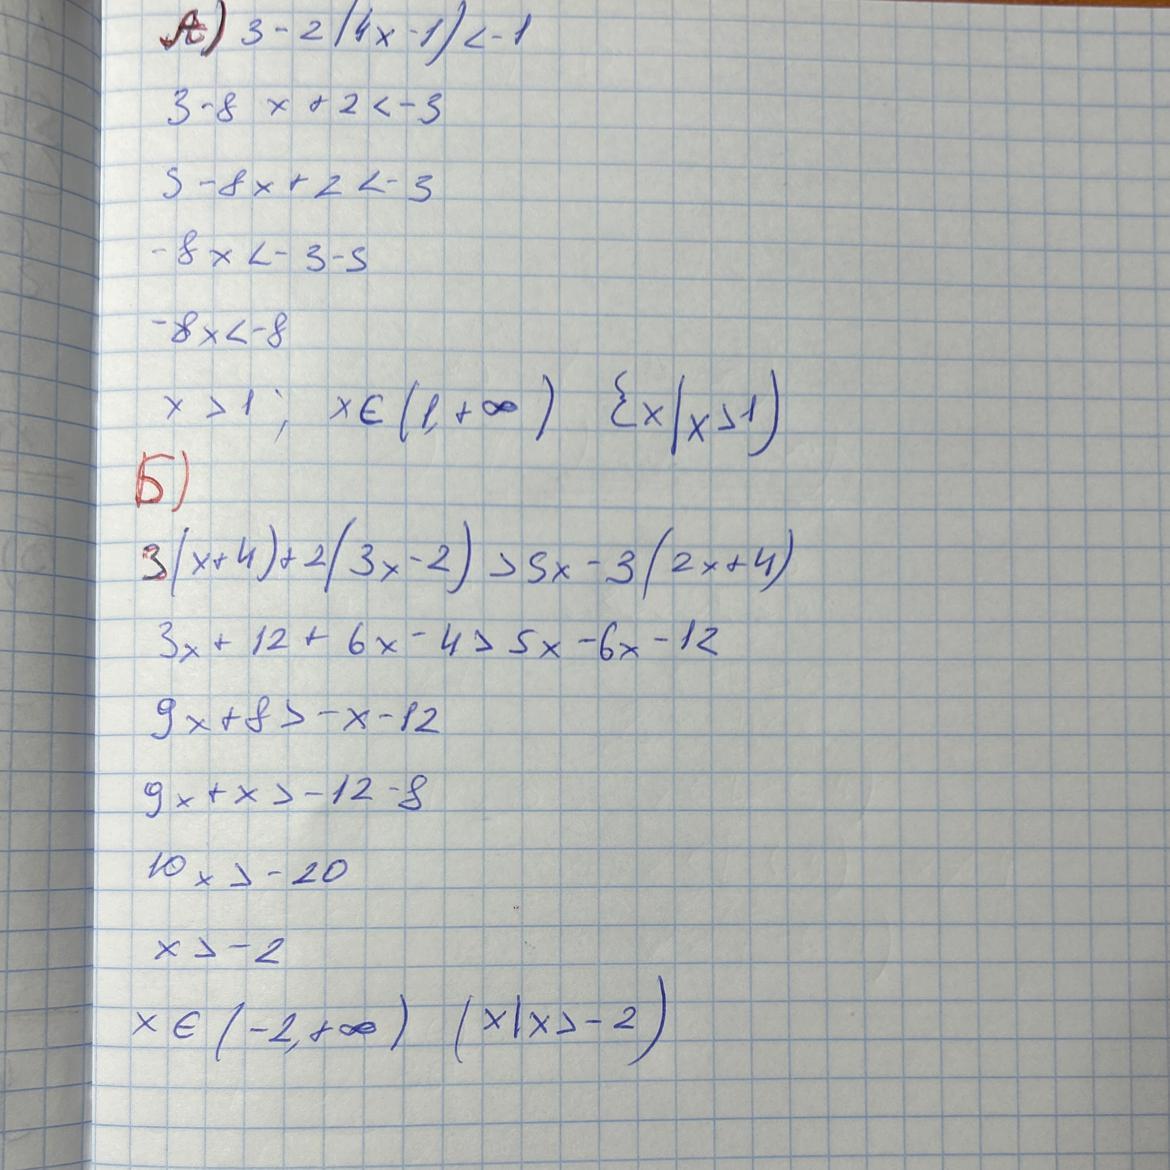 А) 3-2(4x-1)<-1
3-8 x+2<-3
5-8x+2<-3
-8x<-3-5
-8x<-8
x>1; x∈(1,+∞) {x|x>1)
Б)
3(x+4)+2(3x-2)>5x-3(2x+4)
3x+12+6x-4>5x-6x-12
9x+8>-x-12
9x+x>-12-8
10x>-20
x>-2
x∈(-2,+∞) (x|x>-2)